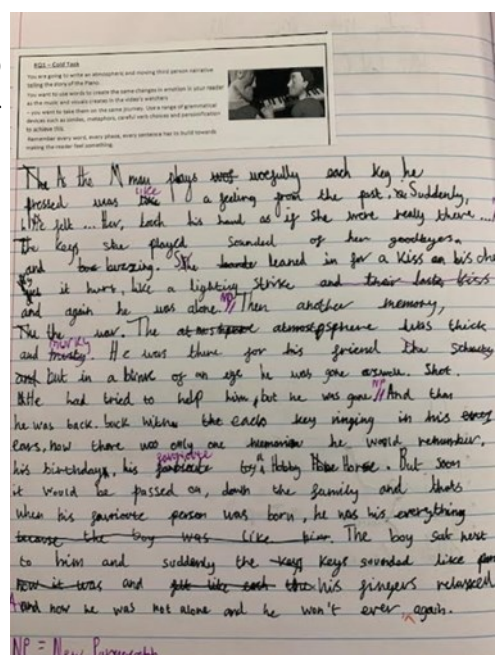 EQ1 – Cold Task
You are going to write an atmospheric and moving third person narrative
telling the story of the Piano.
You want to use words to create the same changes in emotion in your reader
as the music and visuals creates in the video's watchers
– you want to take them on the same journey. Use a range of grammatical
devices such as similes, metaphors, careful verb choices and personification
to achieve this.
Remember every word, every phase, every sentence has to build towards
making the reader feel something.
The As the M man plays was woefully each key he
pressed was like like a feeling from the past. Suddenly,
he felt ... Her, touch his hand as if she were really there ...
The keys she played sounded of her goodbyes.
and buzzing. She leaned in for a kiss on his
it hurt, like a lighting strike and their last kiss
and again he was alone. NP // Then another memory,
The the war. The atmosphere was thick
and murky misty. He was there for his friend
and but in a blink of an eye he was gone Shot.
He had tried to help him, but he was gone NP // And then
he was back. back with the each key ringing in his
ears, now there was only one he would remember,
his birthday, his favourite toy a Hobby Horse. But soon
it would be passed on, down the family and thats
when his favriote person was born, he was his everything
because the boy was like him. The boy sat next
to him and suddenly the keys keys sounded like
now it was and felt like each the his fingers relaxed
And now he was not alone and he won't ever ^ again.
NP = New Paragraph